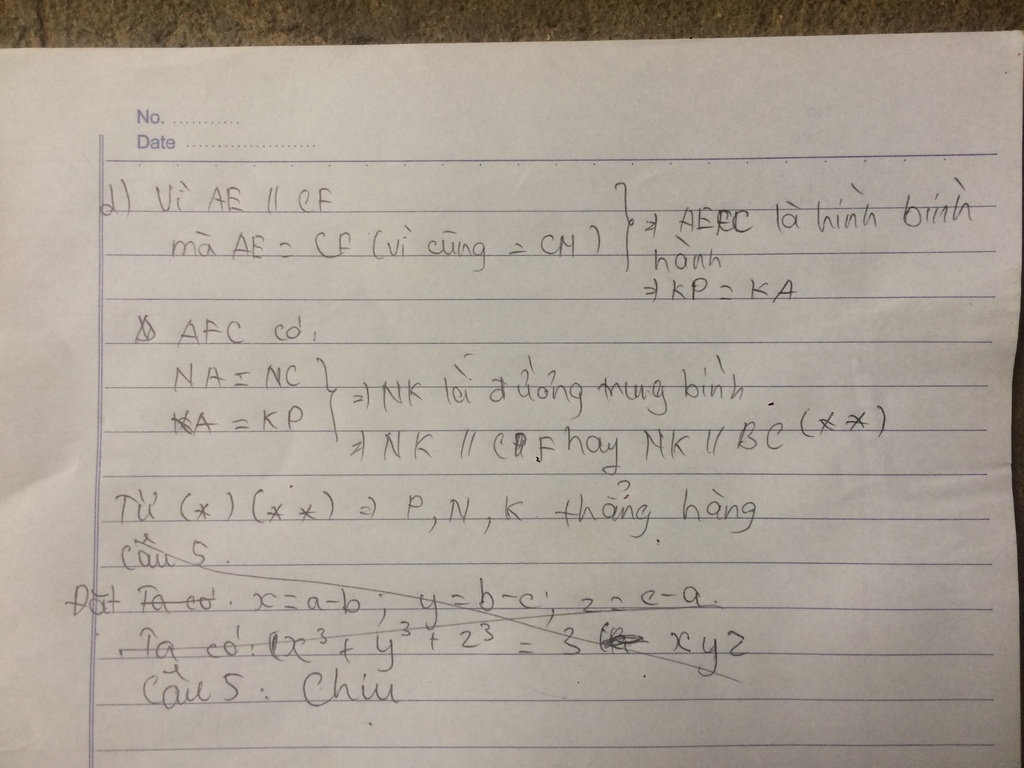 No. ...........
Date .....................
d) Vì AE // CF
mà AE = CF (vì cũng = CM) } ⇒ AEFC là hình bình
hành
⇒ KP = KA
Δ AFC có:
NA = NC } ⇒ NK là đường trung bình
KA = KP
⇒ NK // CF hay NK // BC (**)
Từ (*) (**) ⇒ P, N, K thẳng hàng
Câu 5.
Đặt Ta có. x = a-b; y = b-c; z = c-a.
Ta có: (x³ + y³ + z³ = 3 xyz
Câu 5: Chiu